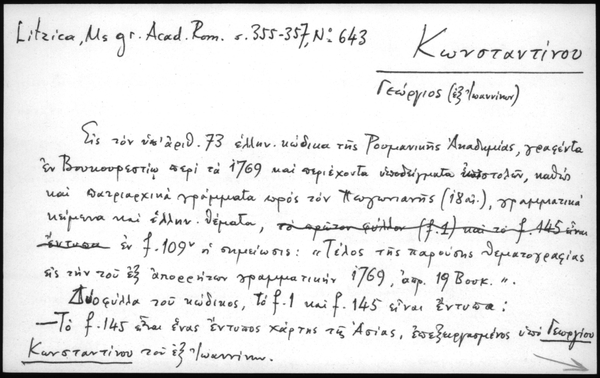 Litzica, Ms gr. Acad. Rom. σ. 355-357, No 643
Κωνσταντίνου
Γεώργιος (ἐξ Ἰωαννίνων)
Εἰς τὸν ὑπ' ἀριθ. 73 ἑλλην. κώδικα τῆς Ρουμανικῆς Ἀκαδημίας, γραφέντα
ἐν Βουκουρεστίῳ περὶ τὰ 1769 καὶ περιέχοντα ὑποδείγματα ἐπιστολῶν, καθὼς
καὶ πατριαρχικὰ γράμματα πρὸς τὸν Πωγωνιανῆς (18 αἰ.), γραμματικὰ
κείμενα καὶ ἑλλην. θέματα, τὸ πρῶτον φύλλον (f.1) καὶ τὸ f. 145 εἶναι
ἔντυπα ἐν f. 109ν ἡ σημείωσις: "Τέλος τῆς παρούσης θεματογραφίας
εἰς τὴν τοῦ ἐξ ἀπορρήτων γραμματικὴν 1769, ἀπρ. 19 Βουκ.".
Δύο φύλλα τοῦ κώδικος, τὸ f.1 καὶ f. 145 εἶναι ἔντυπα:
—Τὸ f. 145 εἶναι ἕνας ἔντυπος χάρτης τῆς Ἀσίας, ἐπεξειργασμένος ὑπὸ Γεωργίου
Κωνσταντίνου τοῦ ἐξ Ἰωαννίνων.